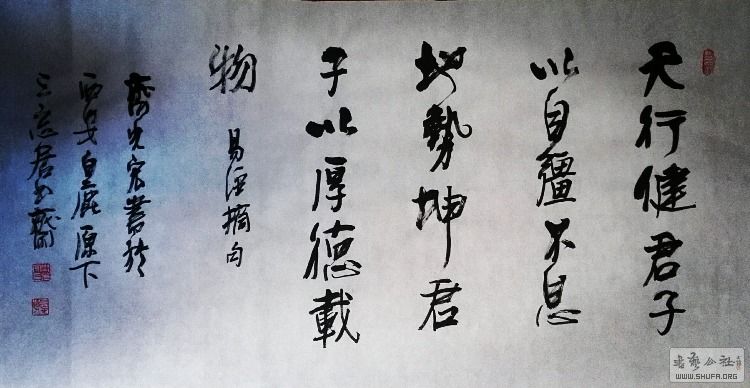 天行健君子
以自疆不息
地勢坤君
子以厚德載
物
易經摘句
書於
西安白鹿原下
書公社
WWW.SHUFA.ORG